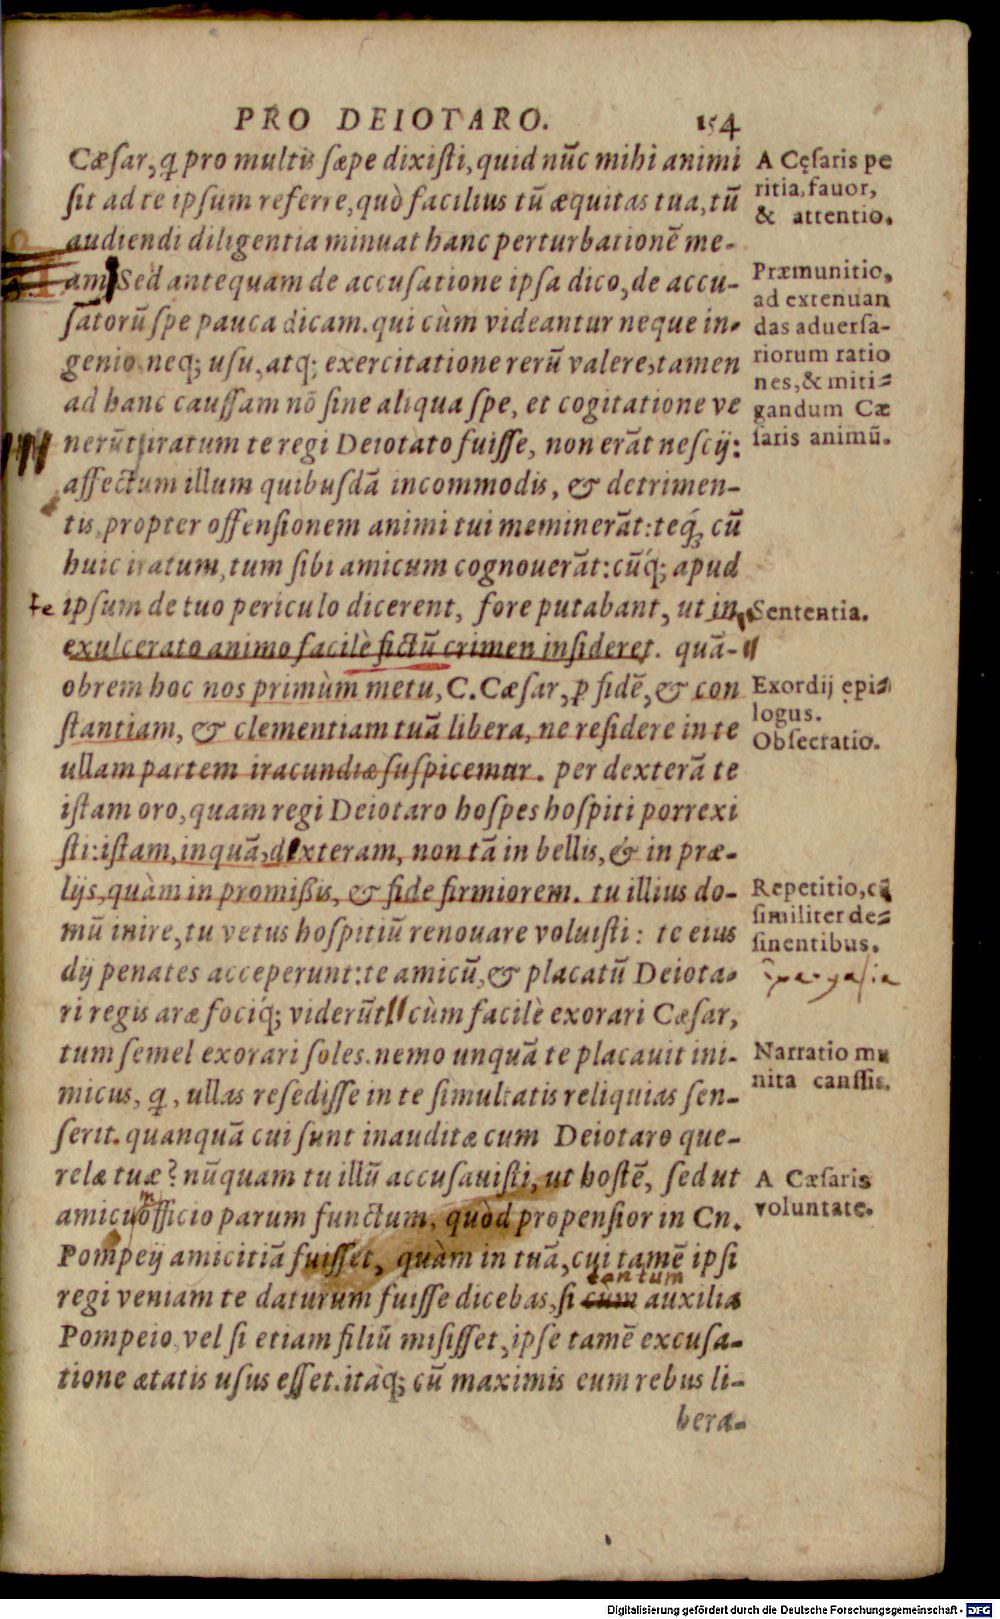 PRO DEIOTARO. 154
Cæſar, ꝙ pro multis ſæpe dixiſti, quid nũc mihi animi
ſit ad te ipſum referre, quò facilius tũ æquitas tua, tũ
audiendi diligentia minuat hanc perturbationẽ me-
am Sed antequam de accuſatione ipſa dico, de accu-
ſatorũ ſpe pauca dicam. qui cùm videantur neque in-
genio neq; uſu, atq; exercitatione rerũ valere, tamen
ad hanc cauſſam nõ ſine aliqua ſpe, et cogitatione ve
nerũt iratum te regi Deiotato fuiſſe, non erãt neſcij:
affectum illum quibuſdã incommodis, & detrimen-
tis, propter offenſionem animi tui meminerãt: teq́; cũ
huic iratum, tum ſibi amicum cognouerãt: cũq́; apud
te ipſum de tuo periculo dicerent, fore putabant, ut in
exulcerato animo facilè fictũ crimen inſideret. quã-
obrem hoc nos primùm metu, C. Cæſar, ꝓ fidẽ, & con
ſtantiam, & clementiam tuã libera, ne reſidere in te
ullam partem iracundiæ ſuſpicemur. per dexterã te
iſtam oro, quam regi Deiotaro hoſpes hoſpiti porrexi
ſti: iſtam, inquã, dexteram, non tã in bellis, & in præ-
lijs, quàm in promiſsis, & fide firmiorem. tu illius do-
mũ inire, tu vetus hoſpitiũ renouare voluiſti: te eius
dij penates acceperunt: te amicũ, & placatũ Deiota-
ri regis aræ fociq́; viderũt cùm facilè exorari Cæſar,
tum ſemel exorari ſoles. nemo unquã te placauit ini-
micus, ꝙ, ullas reſediſſe in te ſimultatis reliquias ſen-
ſerit. quanquã cui ſunt inauditæ cum Deiotaro que-
relæ tuæ? nũquam tu illũ accuſauiſti, ut hoſtẽ, ſed ut
m
amicu officio parum functum, quòd propenſior in Cn.
Pompeij amicitiã fuiſſet, quàm in tuã, cui tamẽ ipſi
tantum
regi veniam te daturum fuiſſe dicebas, ſi cum auxilia
Pompeio, vel ſi etiam filiũ miſiſſet, ipſe tamẽ excuſa-
tione ætatis uſus eſſet. itáq; cũ maximis eum rebus li-
bera-
A Cęſaris pe
ritia, fauor,
& attentio.
Præmunitio,
ad extenuan
das aduerſa-
riorum ratio
nes, & miti-
gandum Cæ
ſaris animũ.
Sententia.
Exordij epi-
logus.
Obſecratio.
Repetitio, cũ
ſimiliter de-
ſinentibus.
Narratio mu
nita cauſſis.
A Cæſaris
voluntate.
Digitalisierung gefördert durch die Deutsche Forschungsgemeinschaft - DFG